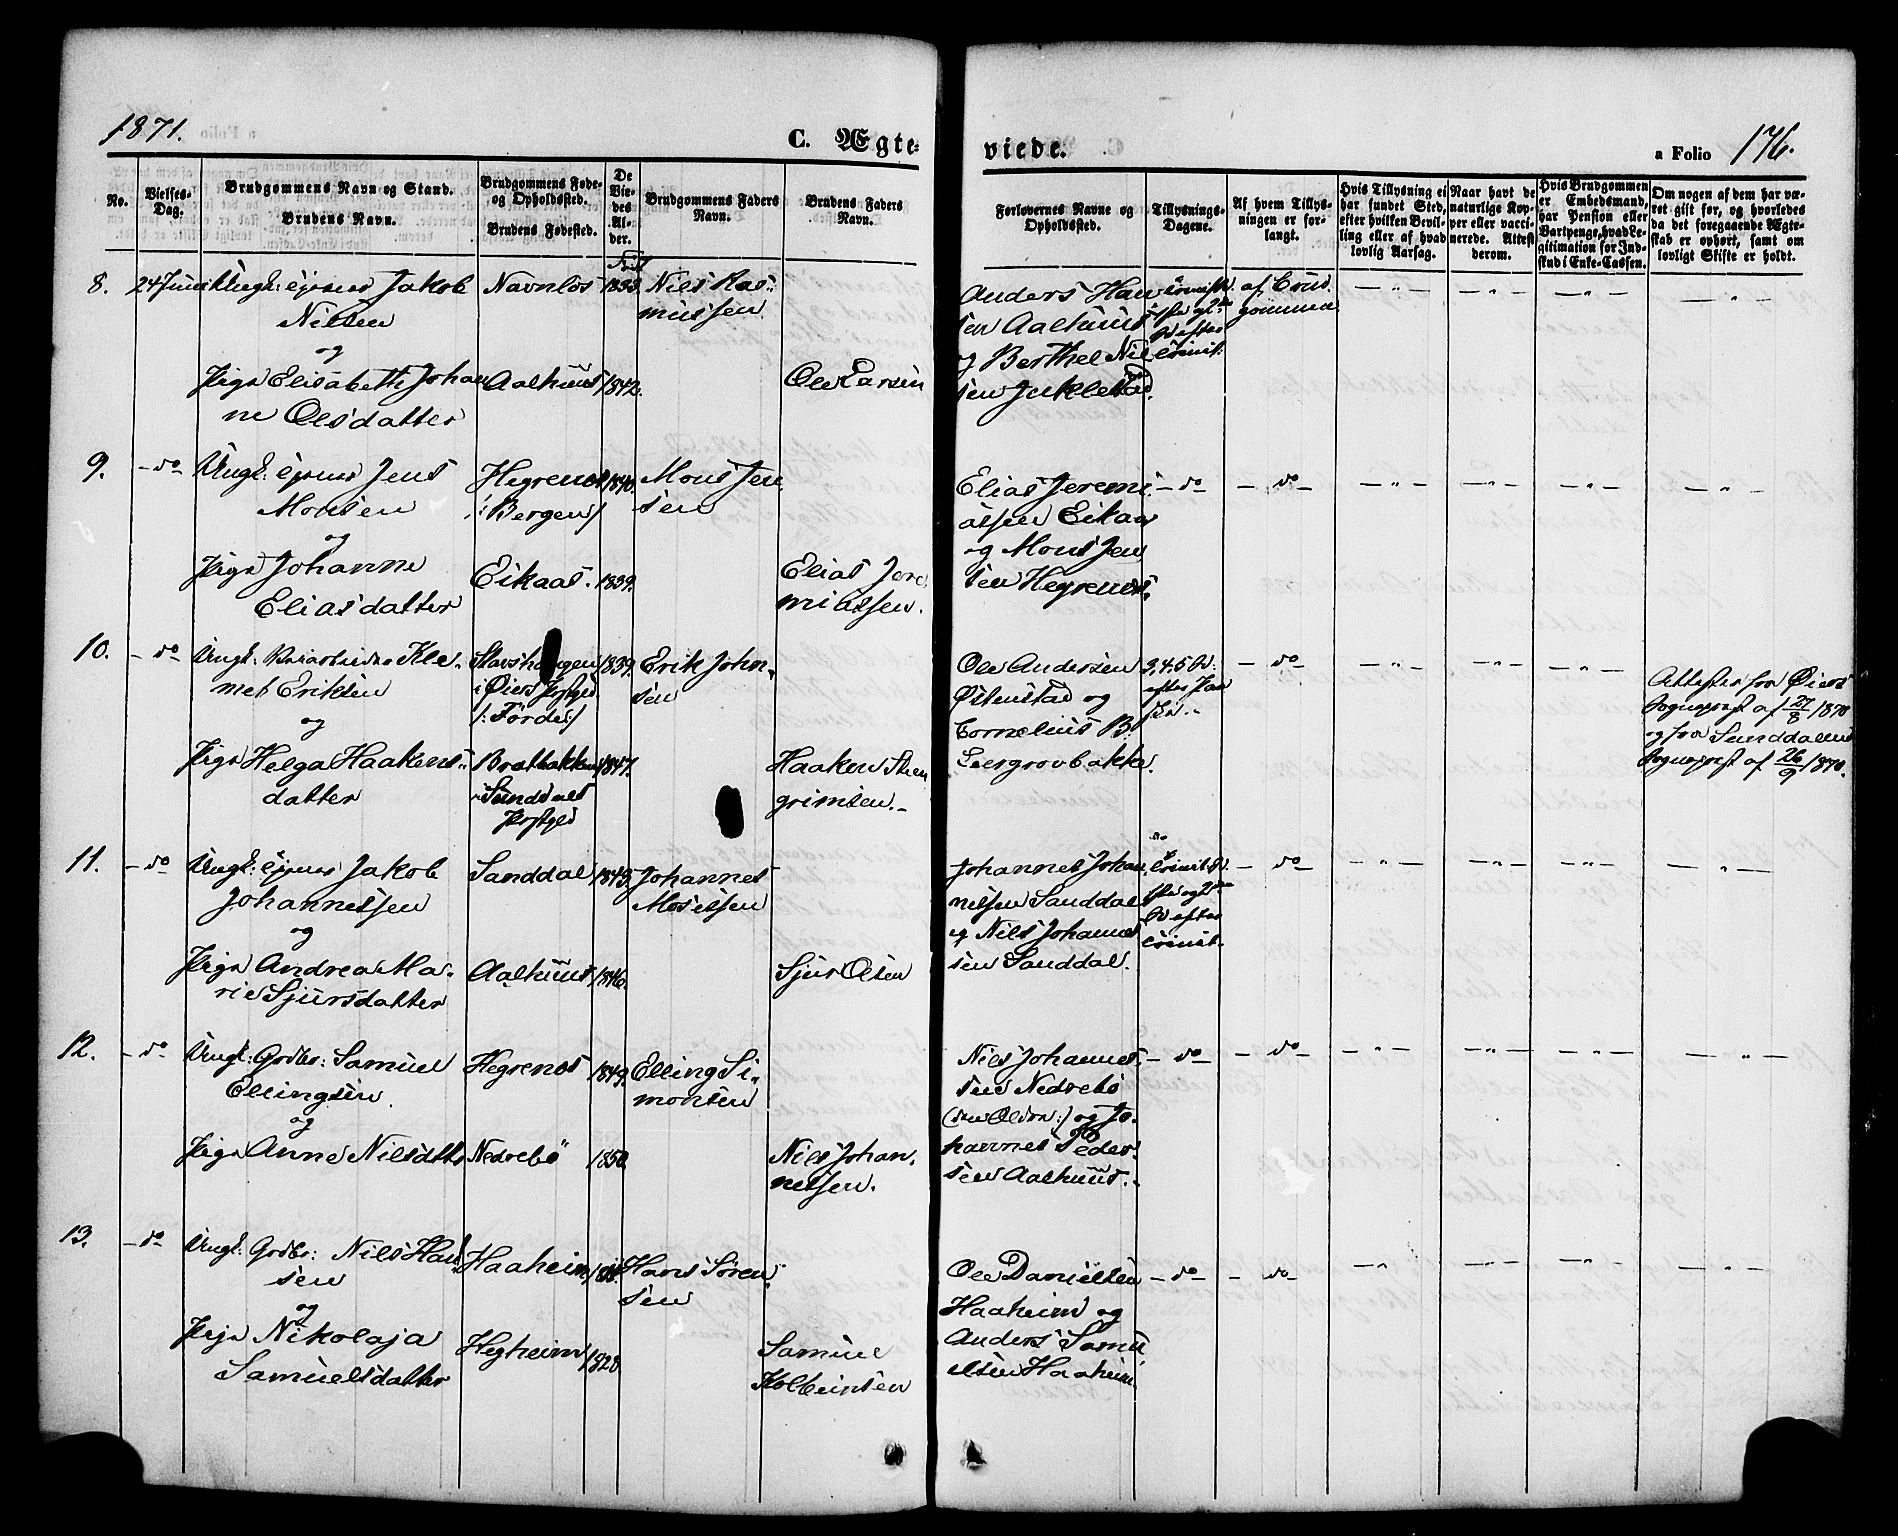 1871.
C. Ægte-
viede.
a Folio 176.
No.
Vielses-
Dag.
Brudgommens Navn og Stand.
Brudens Navn.
Brudgommens Føde-
og Opholdssted.
Brudens Fødested.
De
Vie-
des
Al-
der.
Brudgommens Faders
Navn.
Brudens Faders
Navn.
Forlovernes Navne og
Opholdssted.
Tillysnings-
Dagene.
Af hvem Tillys-
ningen er for-
langt.
Hvis Tillysning ei
har fundet Sted,
efter hvilken Bevil-
ling eller af hvad
lovlig Aarsag.
Naar havt de
naturlige Kop-
per eller vacci-
nerede. Attest
derom.
Hvis Brudgommen
er Embedsmand,
har Pension eller
Vartpenge, hvad Le-
gitimation for Ind-
skud i Enke-Cassen.
Om nogen af dem har væ-
ret gift før, og hvorledes
da det foregaaende Ægte-
skab er ophørt, samt om
lovligt Skifte er holdt.
8. 24 Juni Ungk: Jakob
Nilsen
og
Pige Elisabeth Johan
ne Olsdatter
Navnløs
Aalhuus
1842.
Niels Ras-
mussen.
Ole Larsen
Anders Han
sen Aalhuus
og Berthel Nil
sen Jukelstad.
af Brud
gommen
9. - do - Ungk: Jens
Monsen
og
Pige Johanne
Eliasdatter
Hegrenes
/: Bergen/
Eikaas. 1839.
1840.
Mons Jen
sen
Elias Jere
miassen.
Elias Jeremi
assen Eikaas
og Mons Jen
sen Hegrenes.
- do -
- do -
10. - do Ungk: Kle-
met Eriksen
og
Pige Helga Haakens-
datter
i Øiers Prstgjeld
/: Førde:/
Sundals
Prstgjeld
1839.
1847.
Erik John-
sen
Haaken Stein
grimsen.-
Ole Andersen
Østenstad og
Cornelius B:
Leergrovbakke.
3, 4, 5 S:
efter Paa
ske.-
- do -
Attester fra Øiers
Sogneprest af 27/8 1870
og fra Sunddalens
Sogneprest af 26/9 1870.
11. - do Ungk: Jakob
Johannessen
og
Pige Andrea Ma-
rie Sjursdatter
Sanddal
Aalhuus
1845.
1846.
Johannes
Mosessen
Sjur Olsen
Johannes Johan
nessen Sanddal
og Nils Johannes
sen Sanddal.
- do -
12. - do Ungk: Grdbr: Samuel
Ellingsen
og
Pige Anne Nilsdtr
Hegrenes
Nedrebø
1849.
1850
Elling Si-
monsen
Niels Johan-
nessen.
Niels Johannes-
sen Nedrebø
og Jo-
hannes Peder-
sen Aalhuus.-
- do -
- do -
13. - do Ungk: Grdbr: Nils Han
sen
og
Pige Nikolaja
Samuelsdatter
Haaheim
Hegheim
1828.
Hans Søren
sen
Samuel
Kolbeinsen
Ole Danielsen
Haaheim og
Anders Samu
elsen Haaheim.
- do -
- do -